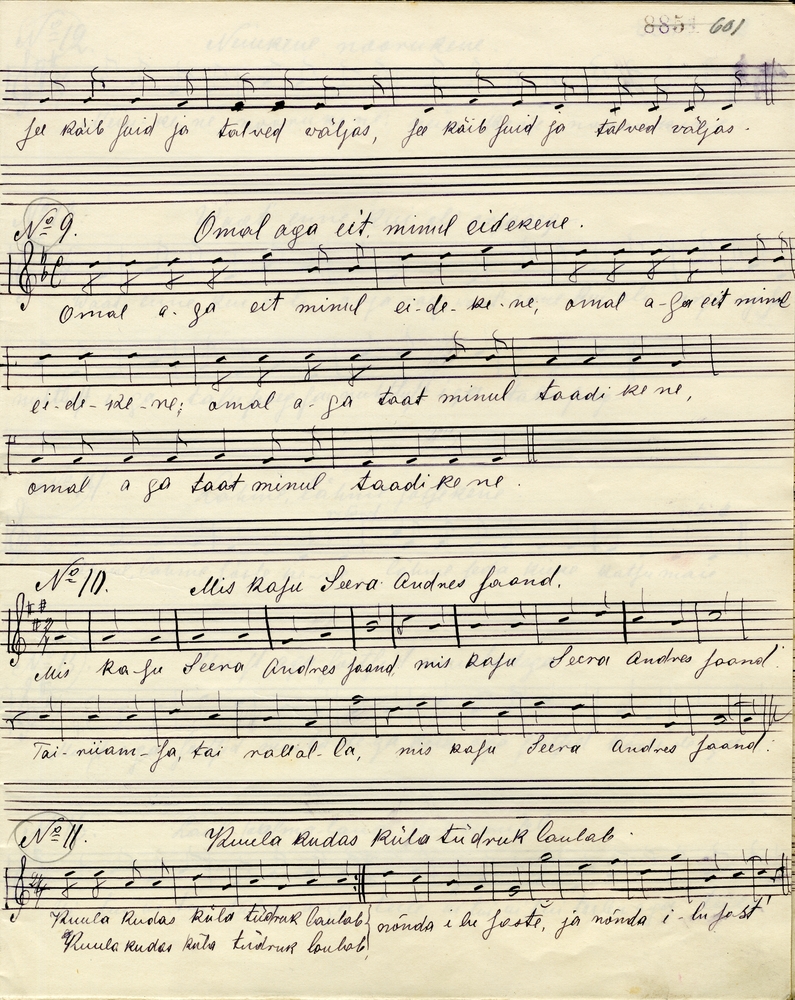 8854 601
See käib suid ja talved väljas, see käib suid ja talved väljas.
No 9. Omal aga eit, minul eidekene.
Omal a-ga eit minul ei-de-ke-ne, omal a-ga eit minul
ei-de-ke-ne; omal a-ga taat minul taadikene,
omal a ga taat minul taadikene.
No 10. Mis kasu Seera Andres saand.
Mis ka-su Seera Andres saand, mis kasu Seera Andres saand.
Tai-riiam-sa, tai rallal-la, mis kasu Seera Andres saand.
No 11. Kuula kudas küla tüdruk laulab.
Kuula kudas küla tüdruk laulab, nõnda i lu saste, ja nõnda i-lu sast'
Kuula kudas küla tüdruk laulab,